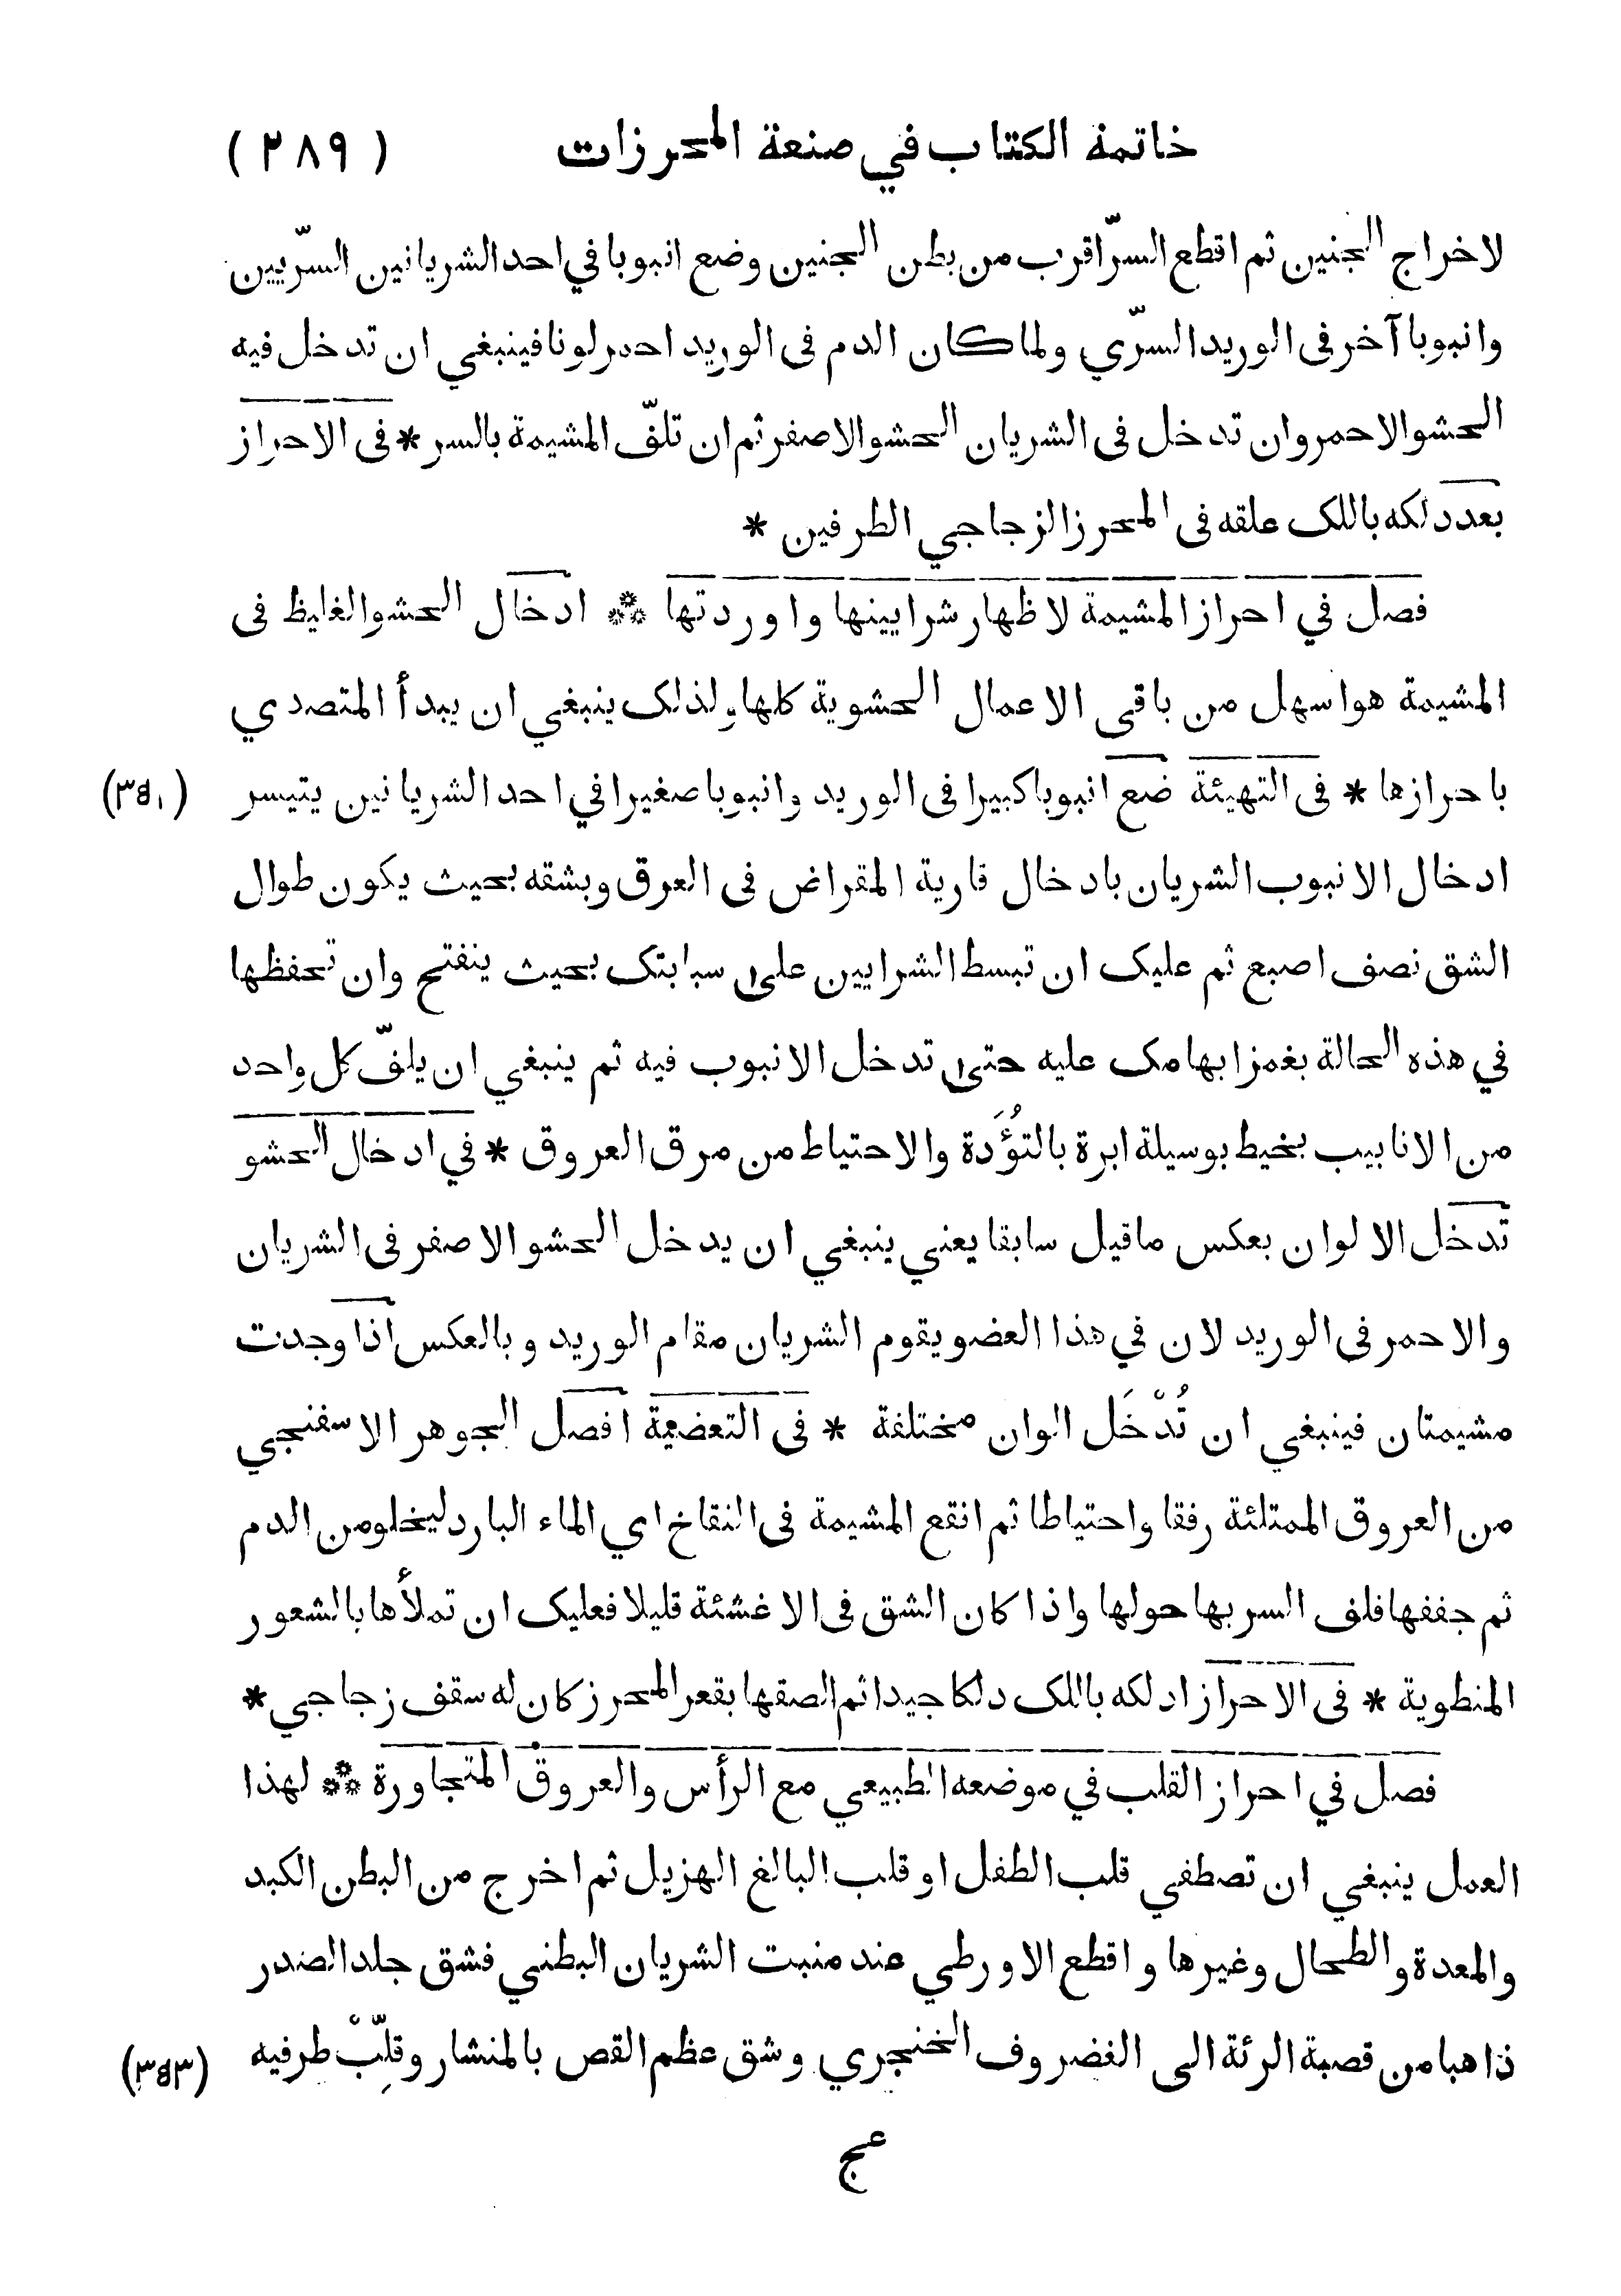 خاتمة الكتاب في صنعة المحرزات (٢٨٩)
لاخراج الجنين ثم اقطع السرّ اقرب من بطن الجنين وضع انبوبا في احد الشريانين السرّيين
وانبوبا آخر فى الوريد السرّي ولما كان الدم فى الوريد احمر لونا فينبغي ان تدخل فيه
الحشو الاحمر وان تدخل فى الشريان الحشو الاصفر ثم ان تلفّ المشيمة بالسر * فى الاحراز
بعد دلكه باللك علقه فى المحرز الزجاجي الطرفين *
فصل في احراز المشيمة لاظهار شرايينها واوردتها ⁂ ادخال الحشو الغليظ فى
المشيمة هو اسهل من باقى الاعمال الحشوية كلها ولذلك ينبغي ان يبدأ المتصدي
باحرازها * فى التهيئة ضع انبوبا كبيرا فى الوريد وانبوبا صغيرا في احد الشريانين يتيسر (٣٥١)
ادخال الانبوب الشريان بادخال قارية المقراض فى العرق وبشقه بحيث يكون طوال
الشق نصف اصبع ثم عليك ان تبسط الشرايين على سبابتك بحيث ينفتح وان تحفظها
في هذه الحالة بغمز ابهامك عليه حتى تدخل الانبوب فيه ثم ينبغي ان يلفّ كل واحد
من الانابيب بخيط بوسيلة ابرة بالتُؤَدة والاحتياط من مرق العروق * في ادخال الحشو
تدخل الالوان بعكس ما قيل سابقا يعني ينبغي ان يدخل الحشو الاصفر فى الشريان
والاحمر فى الوريد لان في هذا العضو يقوم الشريان مقام الوريد وبالعكس اذا وجدت
مشيمتان فينبغي ان تُدْخَل الوان مختلفة * فى التعضية افصل الجوهر الاسفنجي
من العروق الممتلئة رفقا واحتياطا ثم انقع المشيمة فى النقاخ اي الماء البارد ليخلو من الدم
ثم جففها فلف السر بها حولها واذا كان الشق فى الاغشئة قليلا فعليك ان تملأها بالشعور
المنطوية * فى الاحراز ادلكه باللك دلكا جيدا ثم الصقها بقعر المحرز كان له سقف زجاجي *
فصل في احراز القلب في موضعه الطبيعي مع الرأس والعروق المتجاورة ⁂ لهذا
العمل ينبغي ان تصطفي قلب الطفل او قلب البالغ الهزيل ثم اخرج من البطن الكبد
والمعدة والطحال وغيرها واقطع الاورطي عند منبت الشريان البطني فشق جلد الصدر
ذاهبا من قصبة الرئة الى الغضروف الخنجري وشق عظم القص بالمنشار وقلِّبْ طرفيه (٣٥٣)
عج